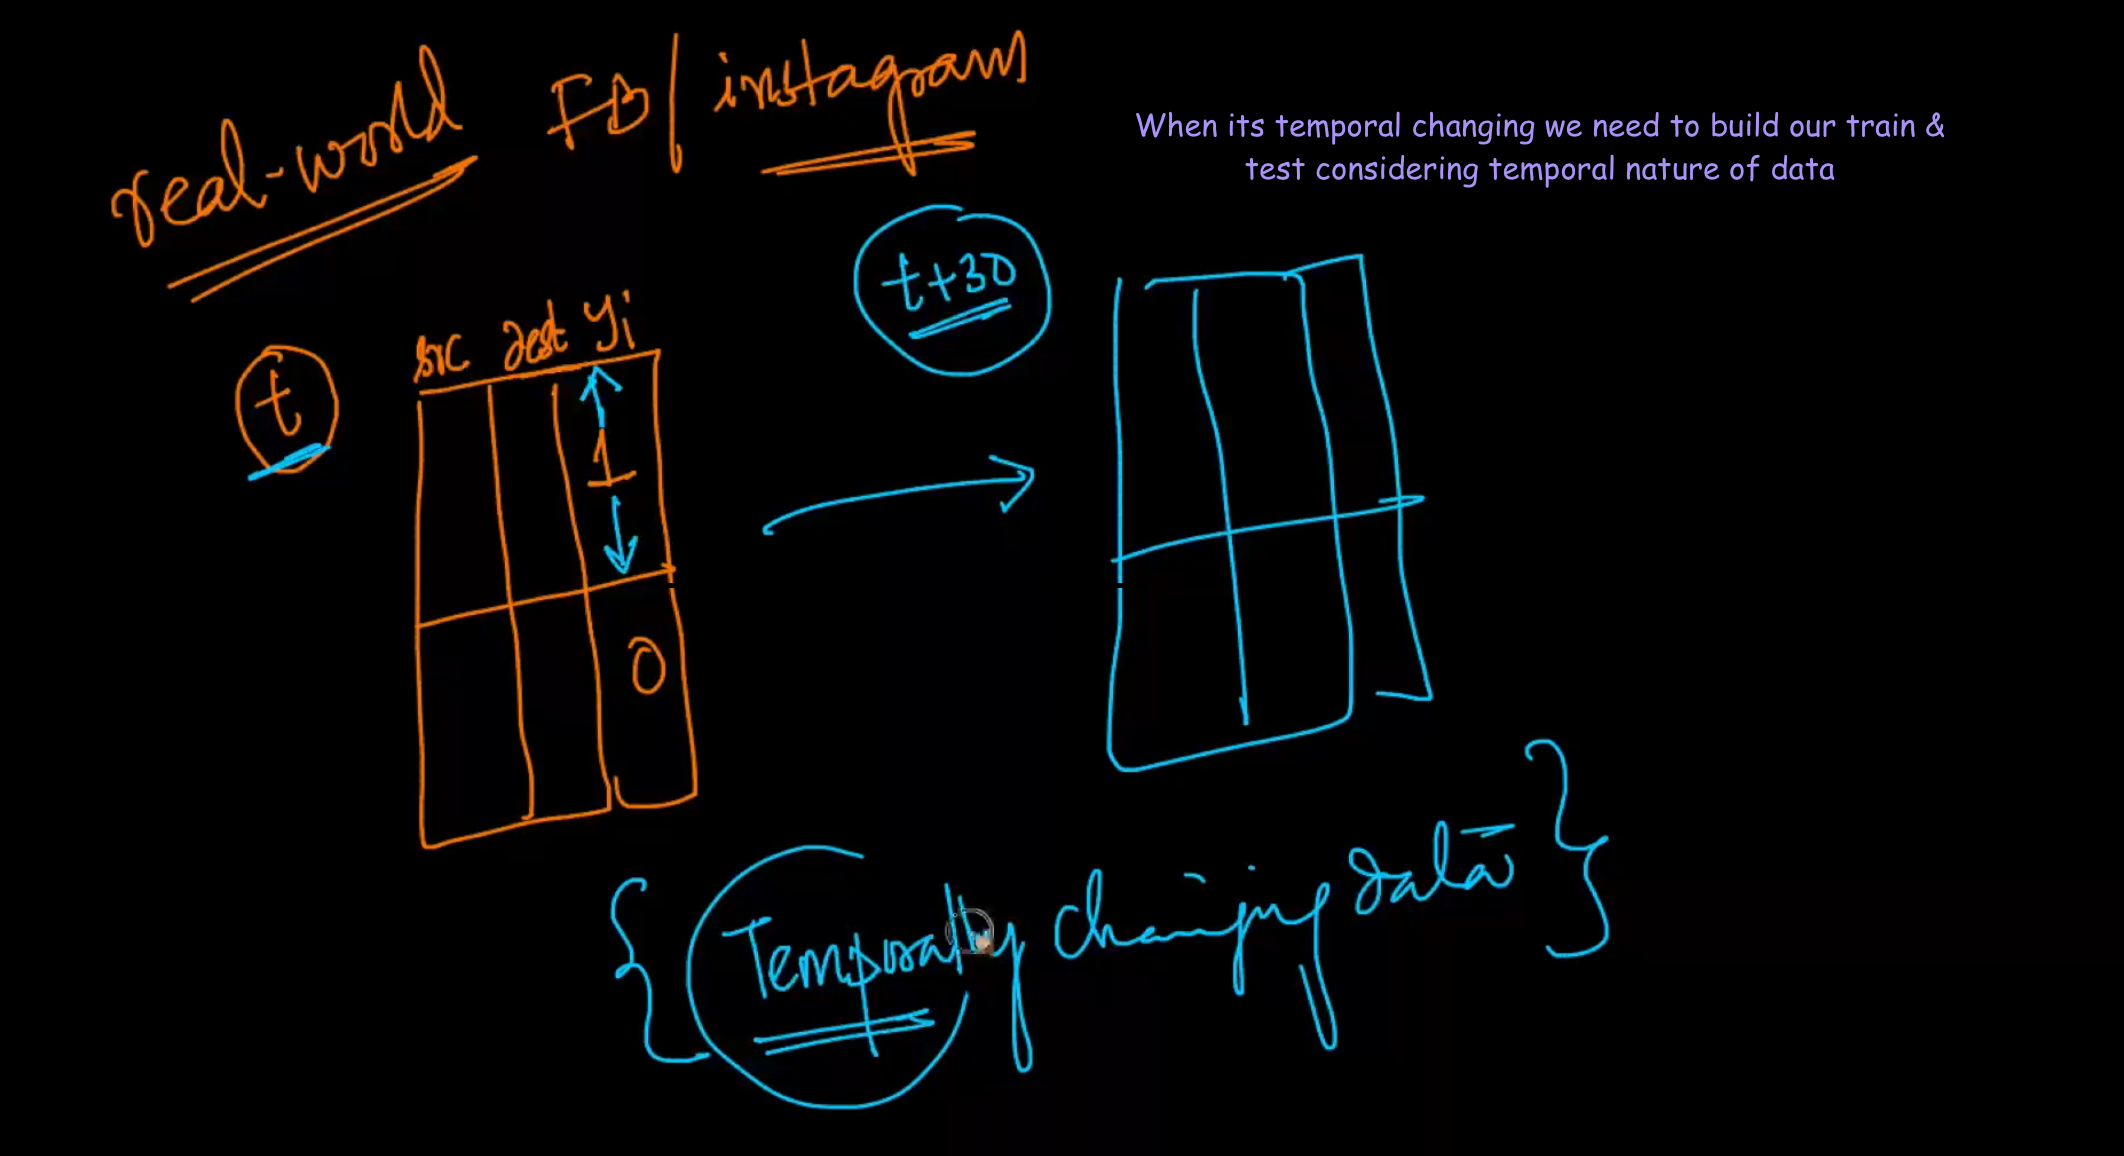 real-world FB/instagram
When its temporal changing we need to build our train &
test considering temporal nature of data
t+30
t
src dest yi
1
0
{Temporally changing data}